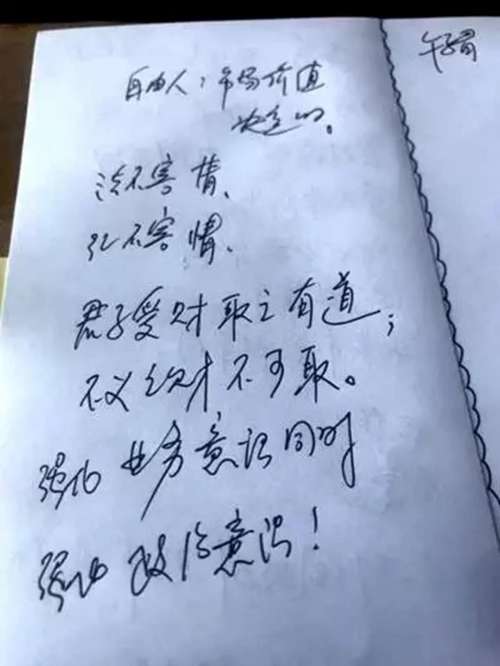 自由人：市场价值
决定的。
法不害情、
礼不害情、
君子爱财取之有道；
不义之财不可取。
强化业务意识同时
强化政治意识！